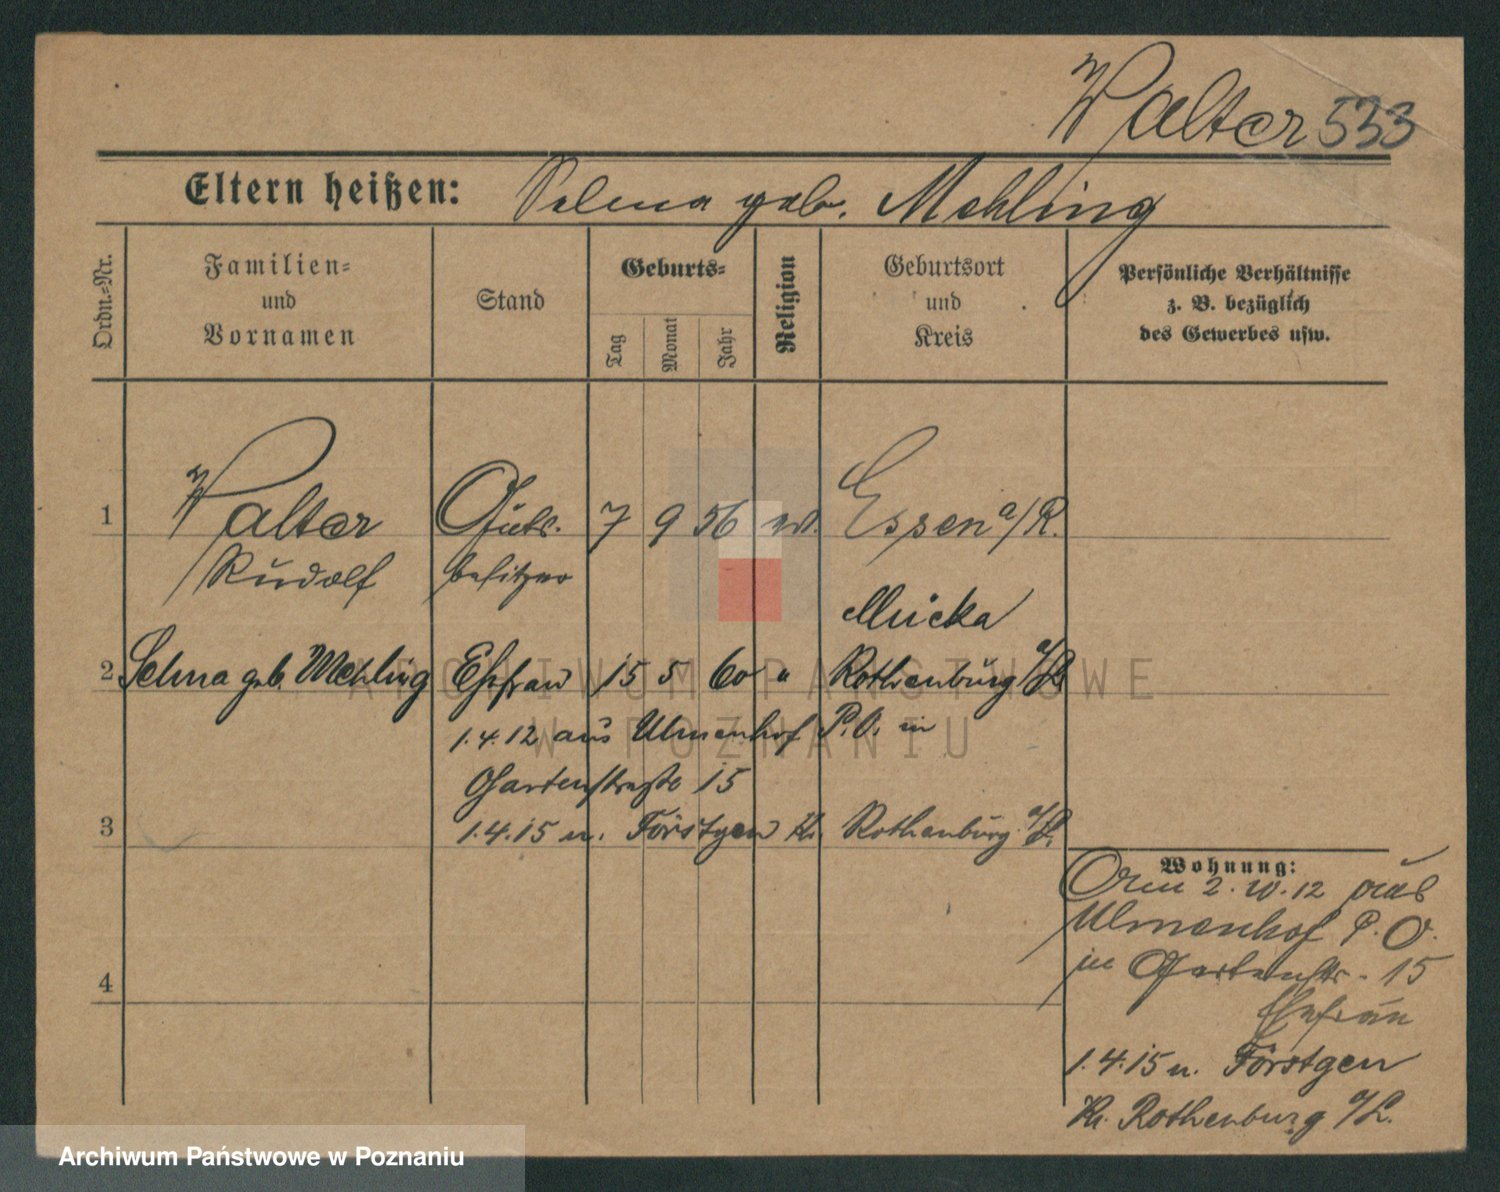 Walter 533
Eltern heißen: Selma geb. Mehling
Ordn.=Nr.
Familien=
und
Vornamen
Stand
Geburts=
Tag
Monat
Jahr
Religion
Geburtsort
und
Kreis
Persönliche Verhältnisse
z. B. bezüglich
des Gewerbes usw.
1 Walter Guts- 7 9 56 ev. Essen a/R.
Rudolf besitzer
Mücka
2 Selma geb. Mehling Ehefrau 15 5 60 " Rothenburg a/L.
1.4.12 aus Ulmenhof P.O. in
Gartenstraße 15
3 1.4.15 n. Förstgen Kr. Rothenburg a/L.
Wohnung:
2. 12 aus
Ulmenhof P.O.
in Gartenstr. 15
Ehefrau
4
1.4.15 n. Förstgen
Kr. Rothenburg a/L.
ARCHIWUM PAŃSTWOWE
W POZNANIU
Archiwum Państwowe w Poznaniu